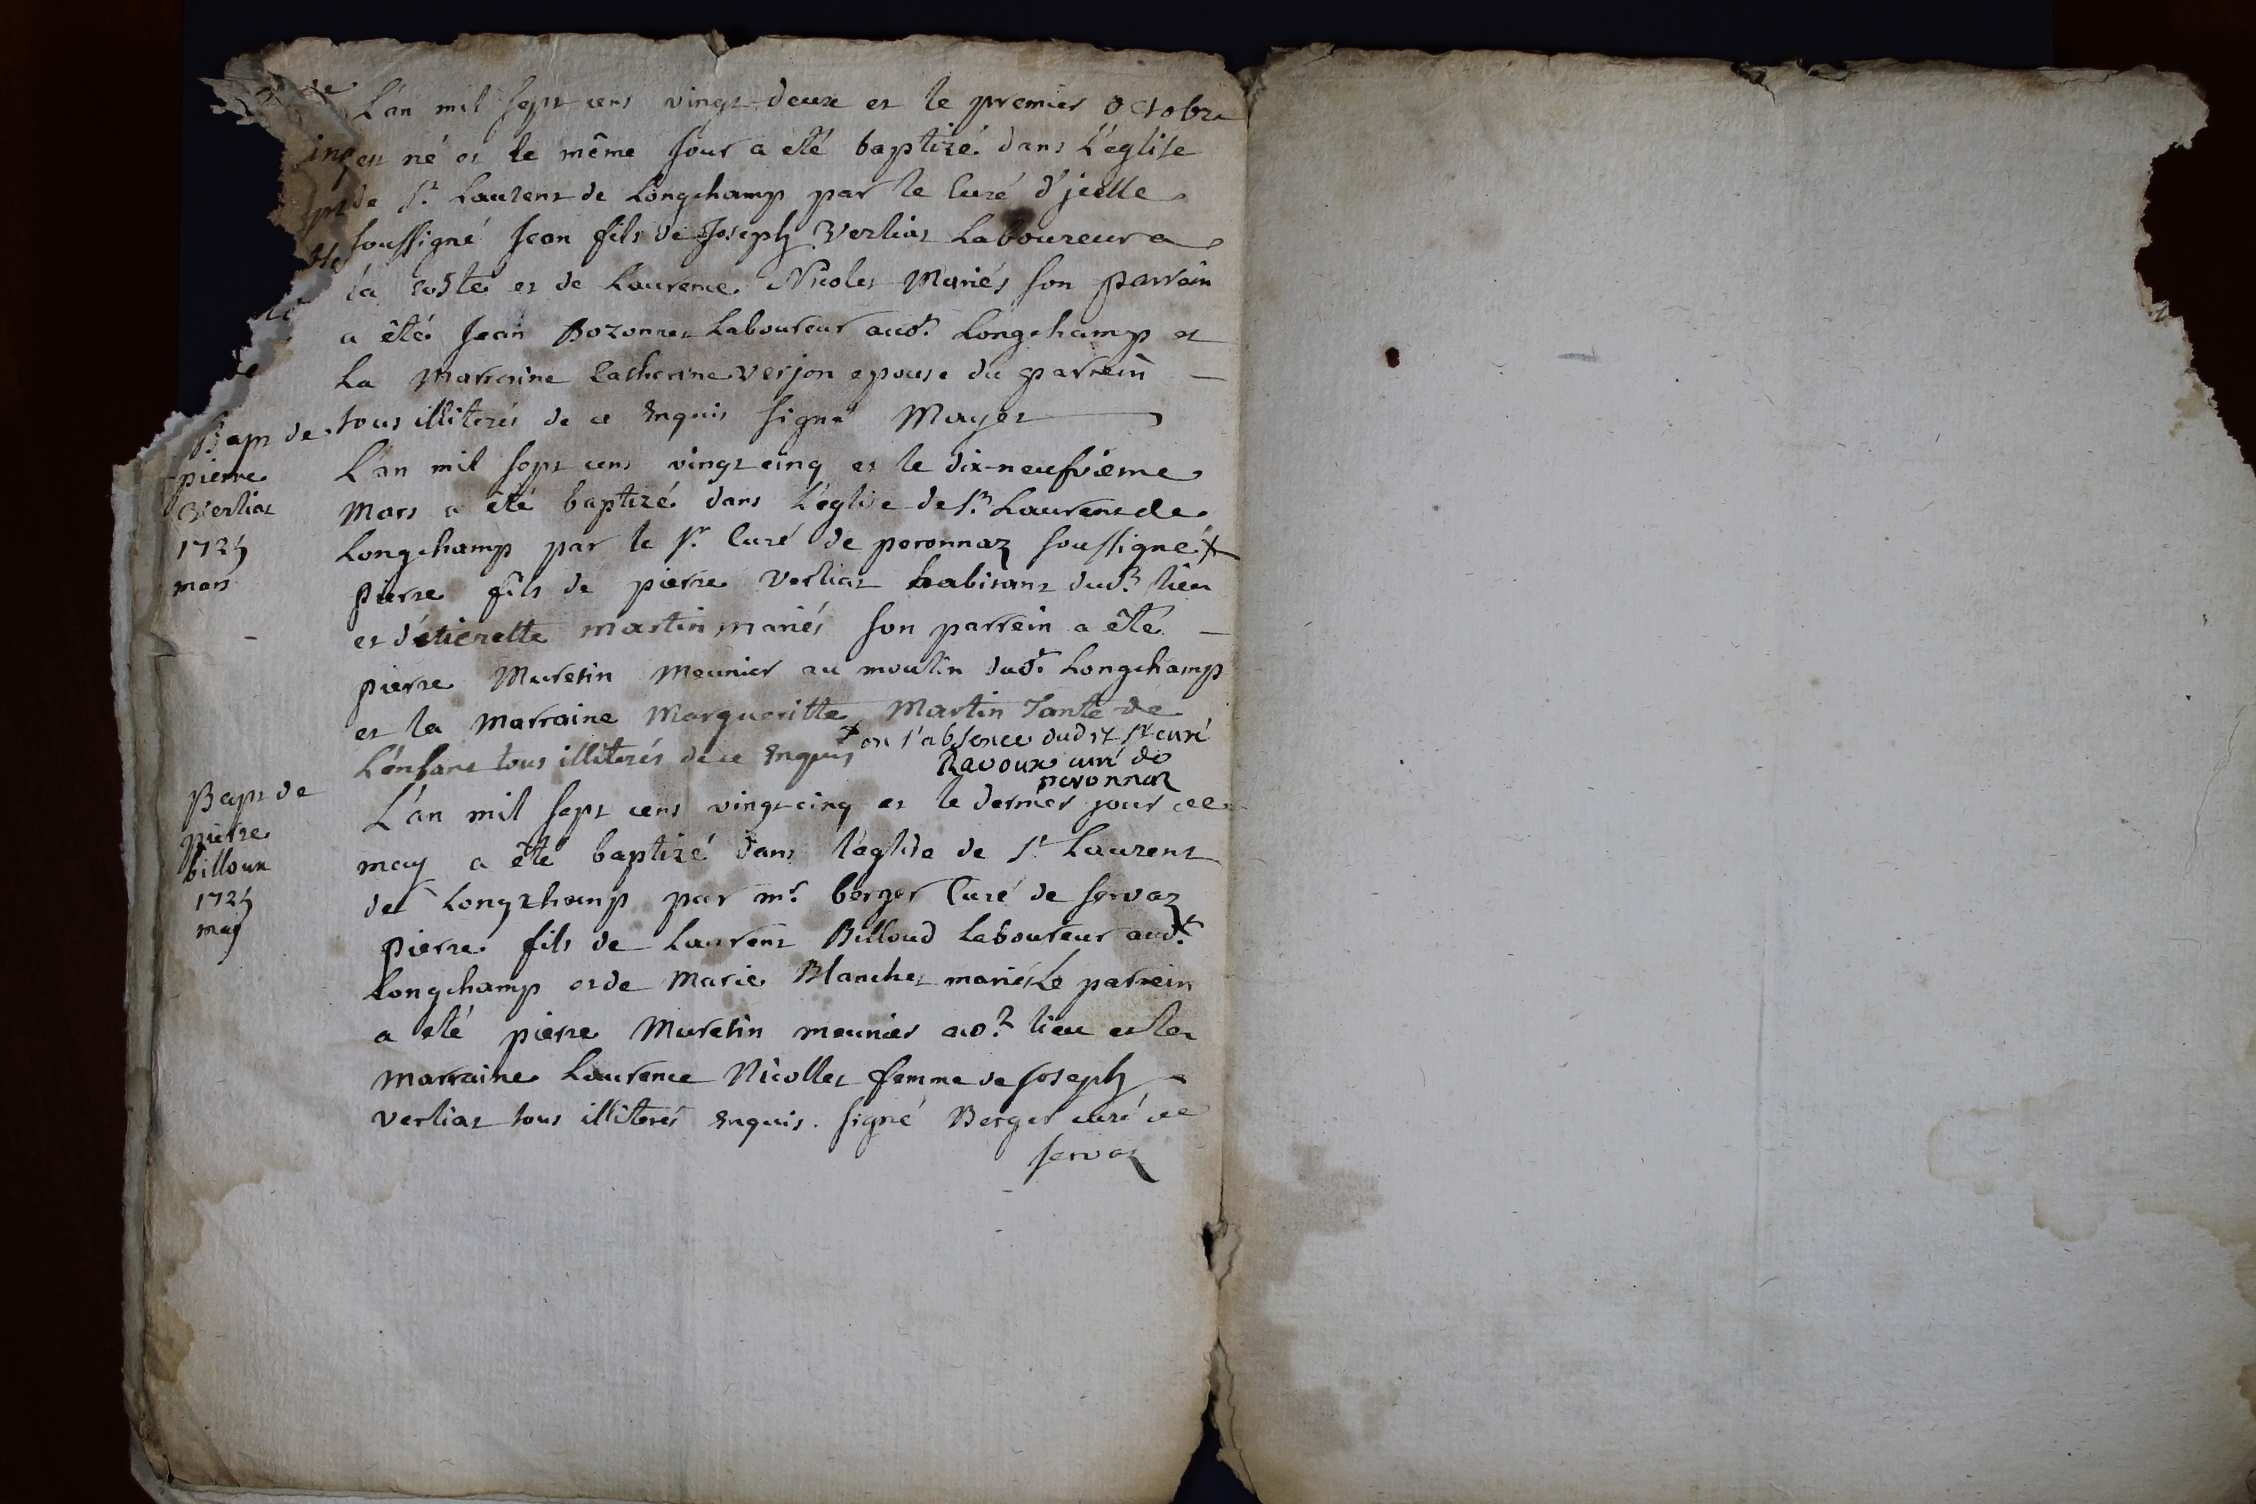 L'an mil sept cent vingt-deux et le premier octobre
est né et le même jour a eté baptizé dans l'église
de st Laurent de Longchamp par le curé d'jcelle
soussigné Jean fils de Joseph Verliat Laboureur a
la coste et de Laurence Nicolet Mariés son parrain
a êté Jean Bozonnet Laboureur aud.t Longchamp et
La Marraine Catherine Verjon epouse du parrein
tous illiterés de ce Enquis signé Mayet
Bapt de
pierre
Verliat
1725
mars
L'an mil sept cent vingt cinq et le dix-neufvieme
Mars a été baptizé dans l'église de st Laurent de
Longchamp par le sr. Curé de peronnaz soussigné +
pierre fils de pierre Verliat habitant dud.t lieu
et d'étienette martin mariés son parrein a êté
pierre Muretin Meunier au moulin dud.t Longchamp
et la Marraine Margueritte Martin Tante de
L'enfant tous illiterés de ce Enquis + en l'absence dudit sr curé
Ravoux curé de
peronnaz
Bapt de
pierre
billoux
1725
may
L'an mil sept cent vingt cinq et le dernier jour de
may a êté baptizé dans l'églide de st Laurent
de Longchamp par mr. berger Curé de servaz
pierre fils de Laurent Billoud Laboureur aud.t
Longchamp et de Marie Blanchet mariés Le parrein
a eté pierre Muretin meunier aud.t lieu et la
marraine Laurence Nicollet femme de Joseph
verliat tous illiterés Enquis. signé Berger curé de
servaz